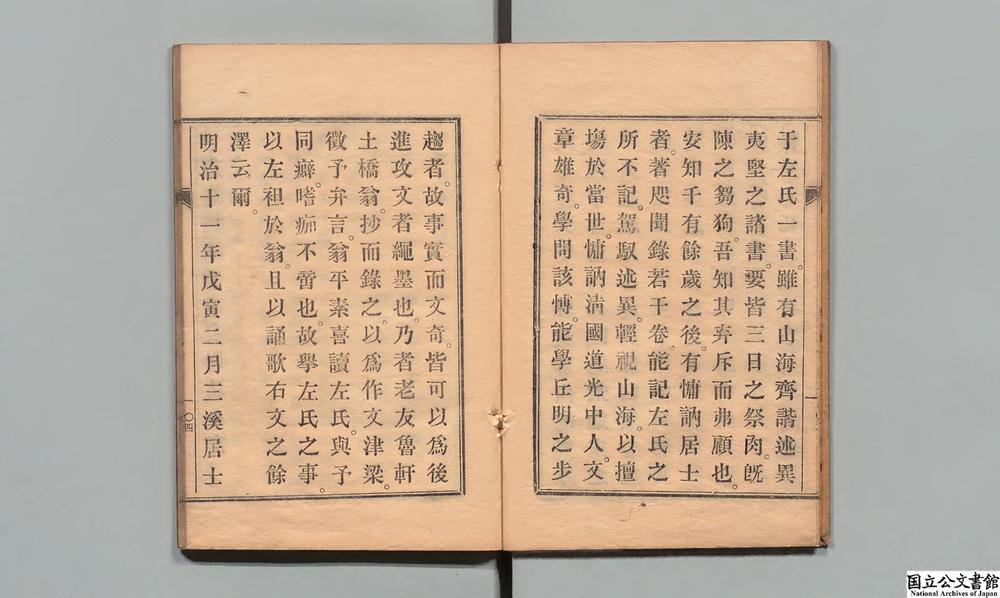 于左氏一書。雖有山海齊諧述異
夷堅之諸書。要皆三日之祭肉。既
陳之芻狗。吾知其弃斥而弗顧也。
安知千有餘歲之後。有慵訥居士
者。著咫聞錄若干卷。能記左氏之
所不記。駕馭述異。輕視山海。以擅
塲於當世。慵訥淸國道光中人。文
章雄奇。學問該博。能學丘明之步
趨者。故事實而文奇。皆可以爲後
進攻文者繩墨也。乃者老友魯軒
土橋翁。抄而錄之。以爲作文津梁。
徵予弁言。翁平素喜讀左氏。與予
同癖。嗜痂不啻也。故擧左氏之事。
以左袒於翁。且以誦歌右文之餘
澤云爾。
明治十一年戊寅二月三溪居士
〇四
国立公文書館
National Archives of Japan